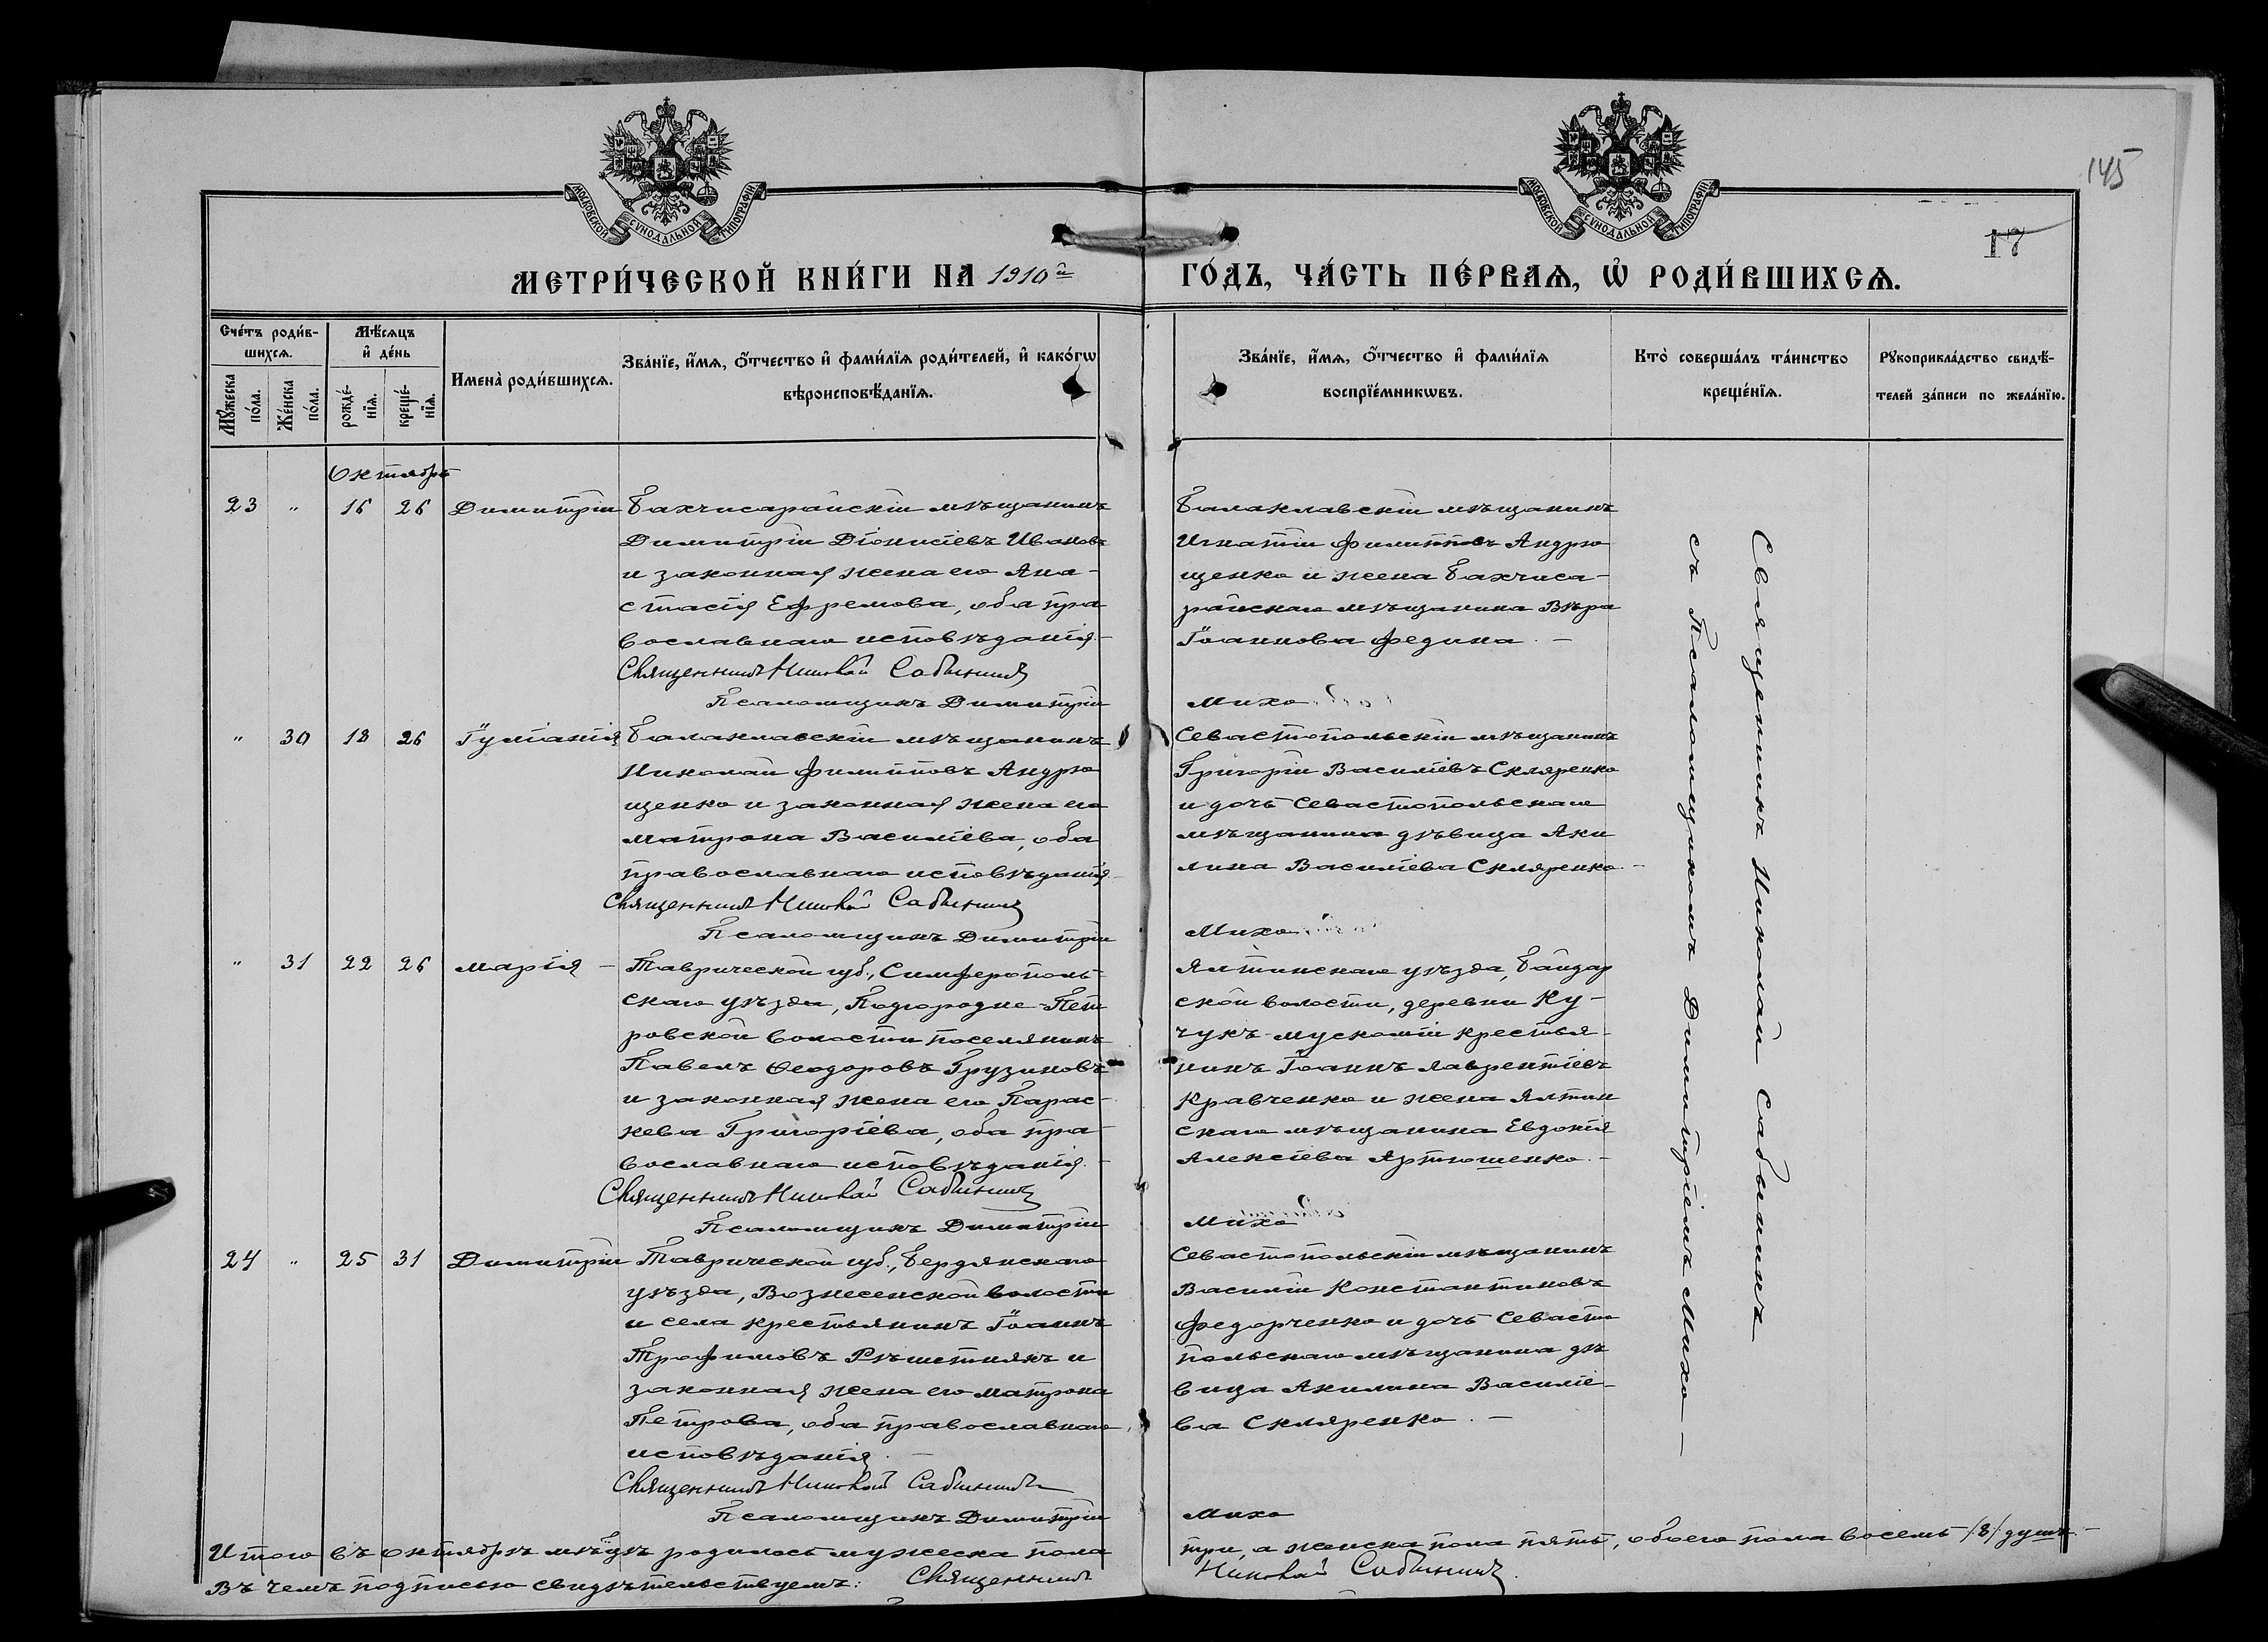 145
17
МОСКОВСКОЙ СѴНОДАЛЬНОЙ ТИПОГРАФІИ
МОСКОВСКОЙ СѴНОДАЛЬНОЙ ТИПОГРАФІИ
МЕТРИ́ЧЕСКОЙ КНИ́ГИ НА 1910й ГО́ДЪ, ЧА́СТЬ ПЕ́РВАѦ, Ѡ҆ РОДИ́ВШИХСѦ.
Сче́тъ роди́в-
шихсѧ.
Мꙋ́жеска по́ла.
Же́нска по́ла.
Мѣ́сѧцъ
и҆ де́нь
рожде́-
нїѧ.
креще́-
нїѧ.
Имена̀ роди́вшихсѧ.
Зва́нїе, и҆́мѧ, ѻ҆́тчество и҆ фами́лїѧ роди́телей, и҆ како́гѡ
вѣроисповѣ́данїѧ.
Зва́нїе, и҆́мѧ, ѻ҆́тчество и҆ фами́лїѧ
воспрїе́мникѡвъ.
Кто̀ соверша́лъ та́инство
креще́нїѧ.
Рꙋкоприкла́дство свидѣ́-
телей за́писи по жела́нїю.
Октябрь
23 " 16 26 Димитрій Бахчисарайскій мѣщанинъ
Димитрій Діонисіевъ Ивановъ
и законная жена его Ана-
стасія Ефремова, оба пра
вославнаго исповѣданія.-
Священникъ Николай Сабининъ
Псаломщикъ Димитрій Михо
Балаклавскій мѣщанинъ
Игнатій Филипповъ Андрю
щенко и жена Бахчиса-
райскаго мѣщанина Вѣра
Іоаннова Федина. -
" 30 18 26 Іуліанія Балаклавскій мѣщанинъ
Николай Филипповъ Андрю
щенко и законная жена его
Матрона Василіева, оба
православнаго исповѣданія.-
Священникъ Николай Сабининъ
Псаломщикъ Димитрій Михо
Севастопольскій мѣщанинъ
Григорій Василіевъ Скляренко
и дочь Севастопольскаго
мѣщанина дѣвица Аки
лина Василіева Скляренко. -
" 31 22 26 Марія - Таврической губ., Симферополь-
скаго уѣзда, Подгородне-Пет
ровской волости поселянинъ
Павелъ Ѳеодоровъ Грузиновъ
и законная жена его Парас-
кева Григоріева, оба пра-
вославнаго исповѣданія.-
Священникъ Николай Сабининъ
Псаломщикъ Димитрій Михо
Ялтинскаго уѣзда, Байдар
ской волости, деревни Ку-
чукъ-Мускомій крестья-
нинъ Іоаннъ Лаврентіевъ
Кравченко и жена Ялтин
скаго мѣщанина Евдокія
Алексіева Артюшенко. -
24 " 25 31 Димитрій Таврической губ., Бердянскаго
уѣзда, Вознесенской волости
и села крестьянинъ Іоаннъ
Трофимовъ Рѣшетнякъ и
законная жена его Матрона
Петрова, оба православнаго
исповѣданія.
Священникъ Николай Сабининъ
Псаломщикъ Димитрій Михо
Севастопольскій мѣщанинъ
Василій Константиновъ
Федорченко и дочь Севасто
польскаго мѣщанина дѣ
вица Акилина Василіе-
ва Скляренко. -
Священникъ Николай Сабининъ
съ Псаломщикомъ Димитріемъ Михо -
Итого въ октябрѣ мѣсяцѣ родилось мужеска пола три, а женска пола пять, обоего пола восемь /8/ душъ.-
Въ чемъ подписью свидѣтельствуемъ: Священникъ Николай Сабининъ.